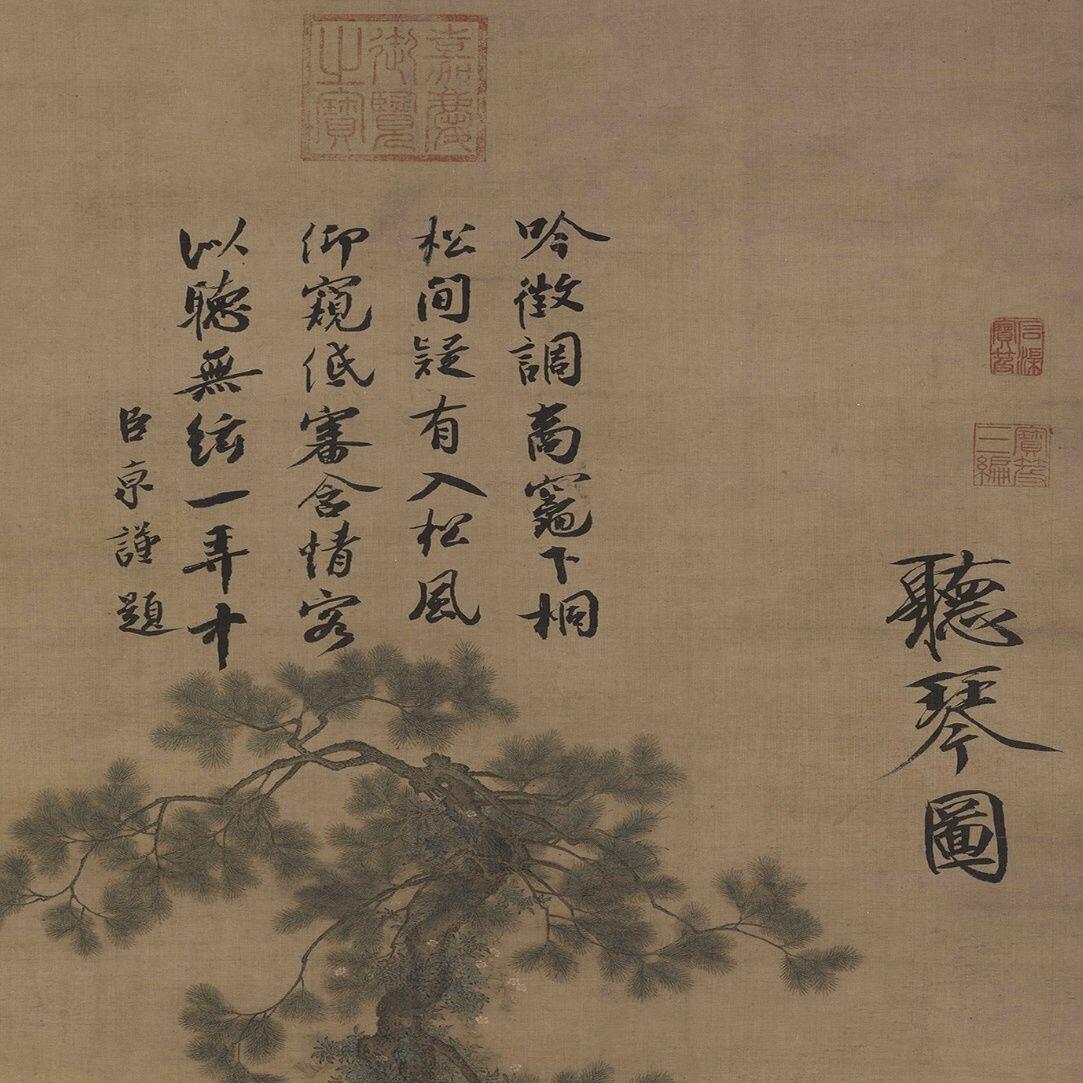 嘉慶御覽之寶
石渠寶笈
寶笈三編
聽琴圖
吟徵調商竈下桐
松間疑有入松風
仰窺低審含情客
以聽無絃一弄中
臣京謹題